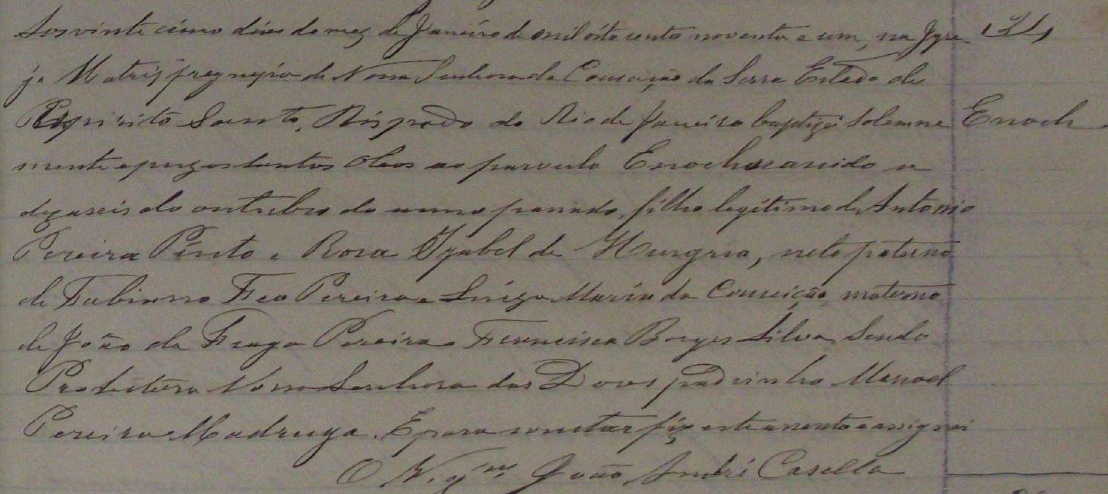 Aos vinte cinco dias do mez de Janeiro de mil oito cento noventa e um, na Igre
ja Matriz freguezia de Nossa Senhora da Conceição da Serra Estado do
Espirito Santo, Bispado do Rio de Janeiro baptizei solemne
mente e puz os santos oleos ao parvulo Enoch nascido a
dezaseis de outubro do anno passado, filho legitimo de Antonio
Pereira Pinto e Rosa Izabel de Hungria, neto paterno
de Fabianno Feo Pereira e Luiza Maria da Conceição, materno
de João de Fraga Pereira e Francisca Borges Silva. Sendo
Protectora Nossa Senhora das Dores, padrinho Manoel
Pereira Madruga. E para constar fiz este assento e assignei
O Vigrº João André Casella
Enoch